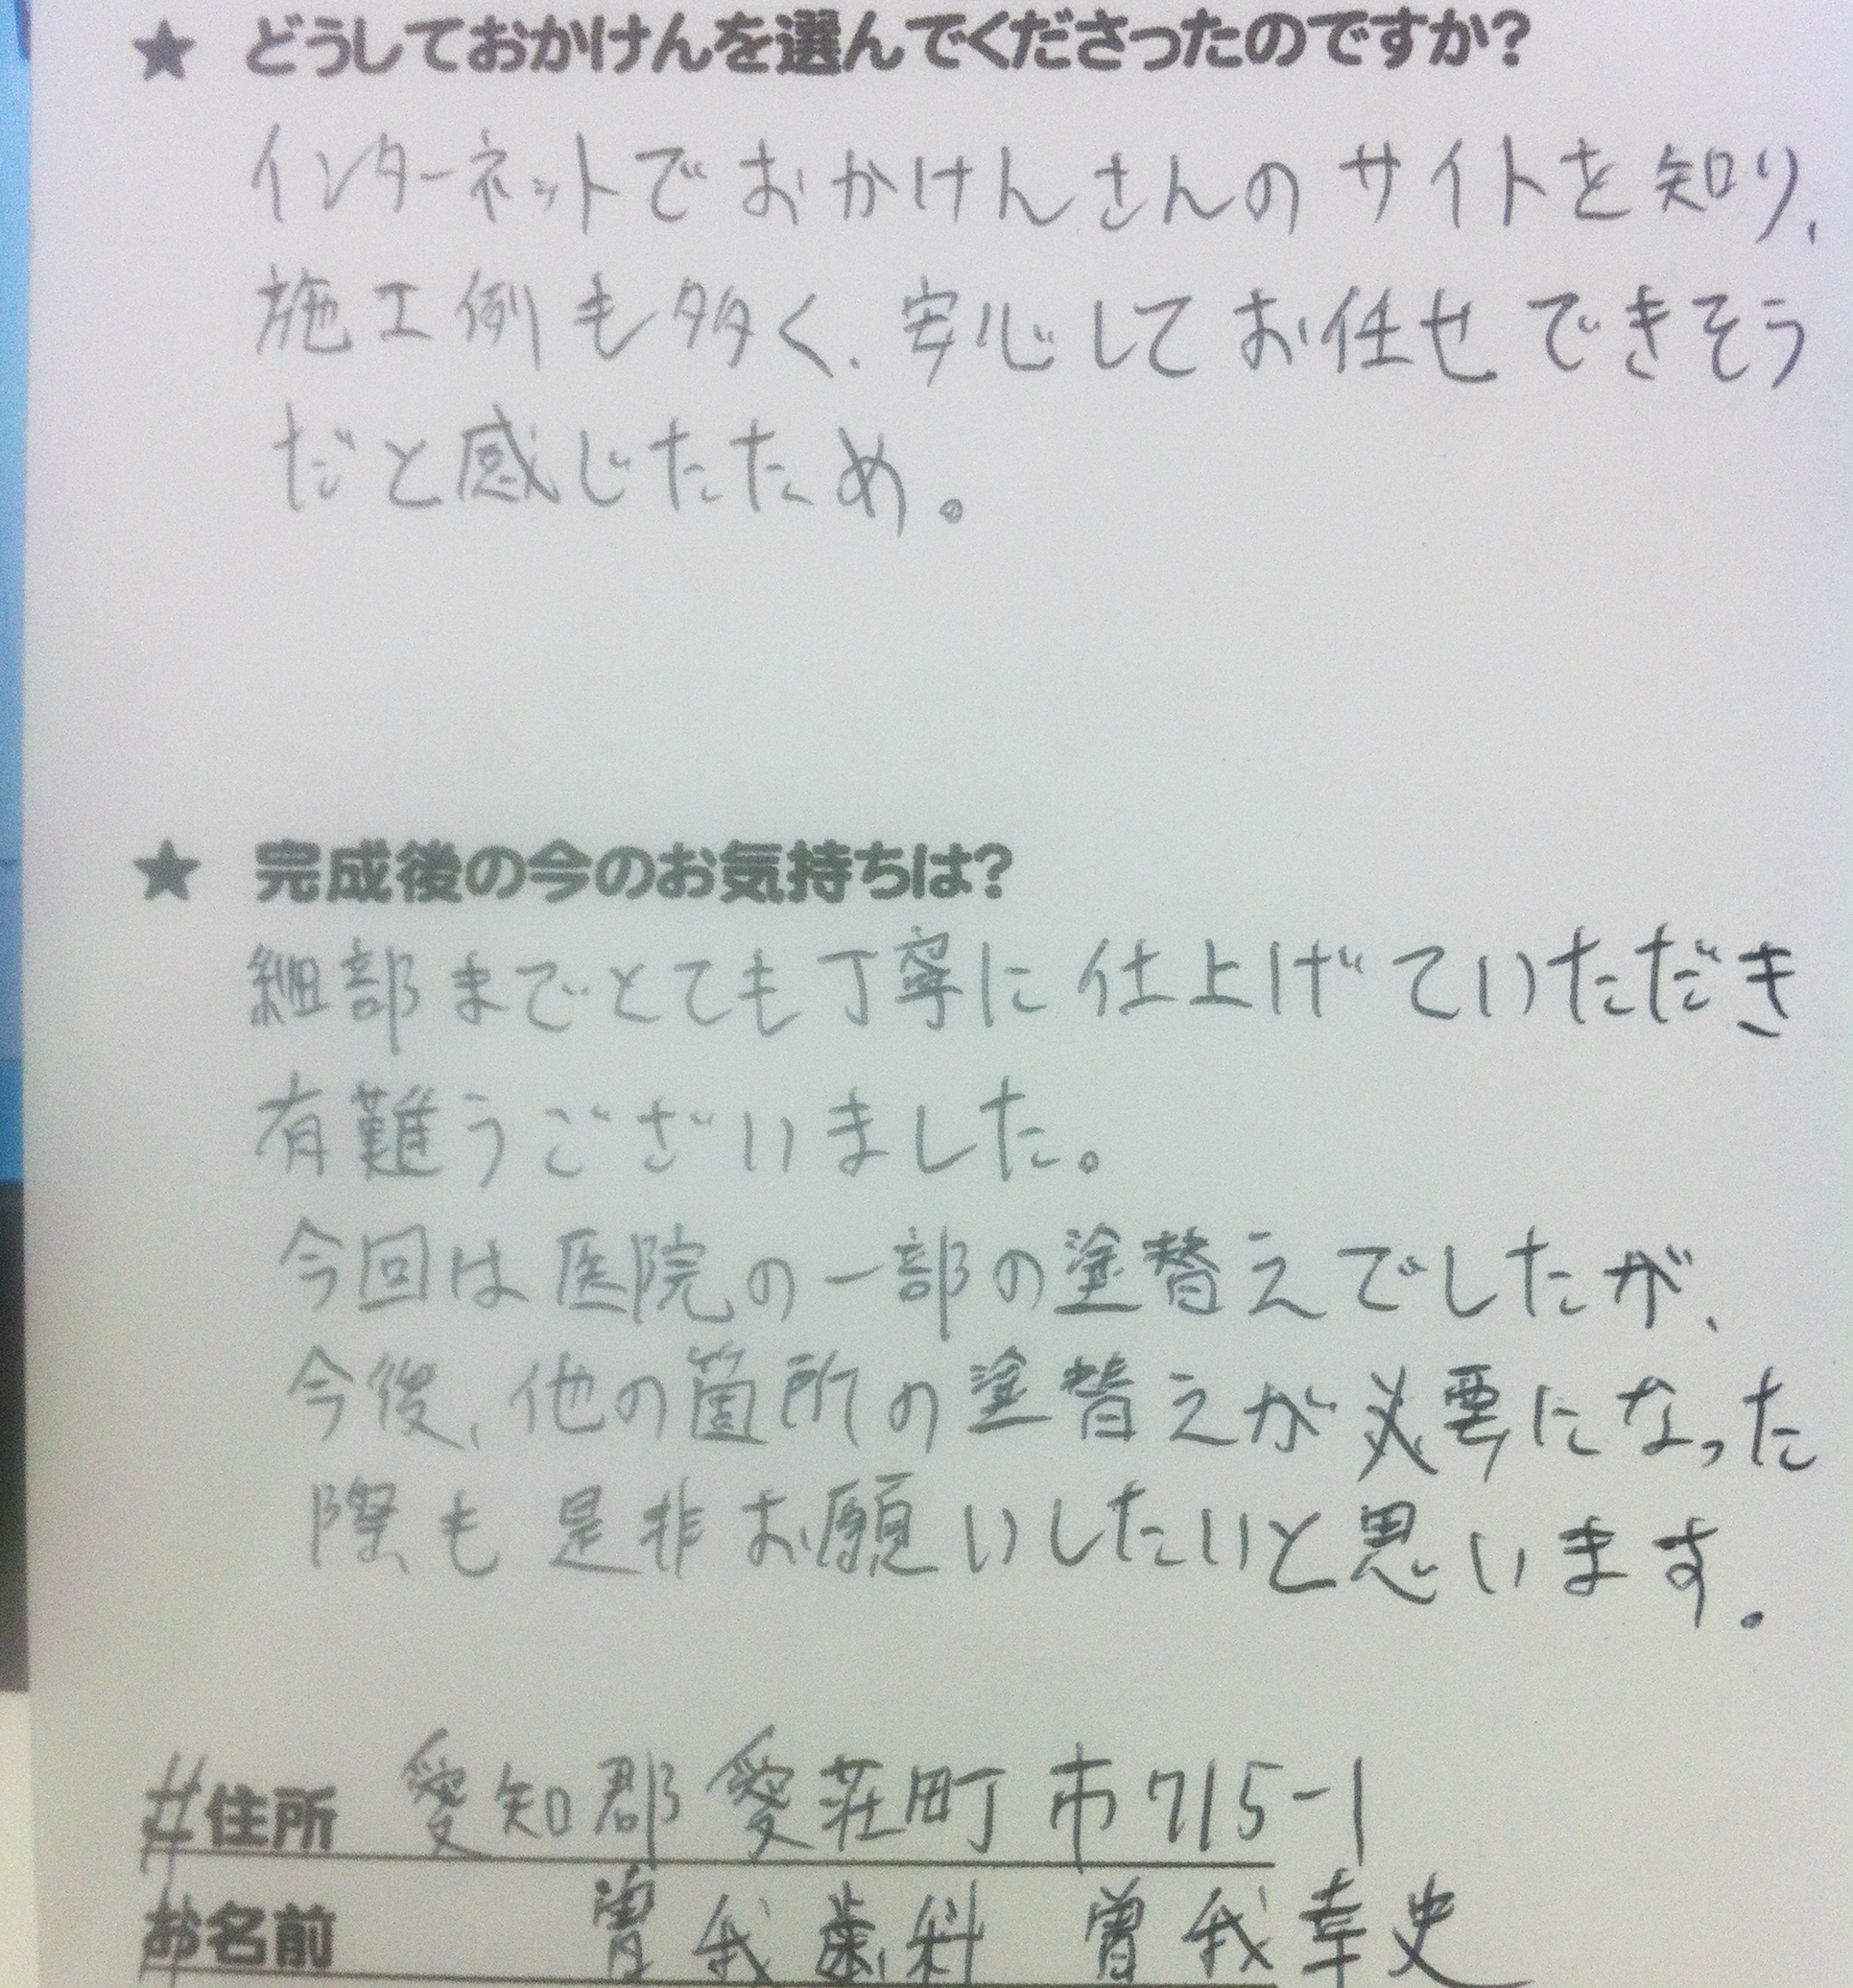 ★ どうしておかけんを選んでくださったのですか?
インターネットでおかけんさんのサイトを知り、
施工例も多く、安心してお任せできそう
だと感じたため。
★ 完成後の今のお気持ちは?
細部までとても丁寧に仕上げていただき
有難うございました。
今回は医院の一部の塗替えでしたが、
今後、他の箇所の塗替えが必要になった
際も是非お願いしたいと思います。
住所 愛知郡愛荘町市715-1
お名前 曽我歯科 曽我幸史